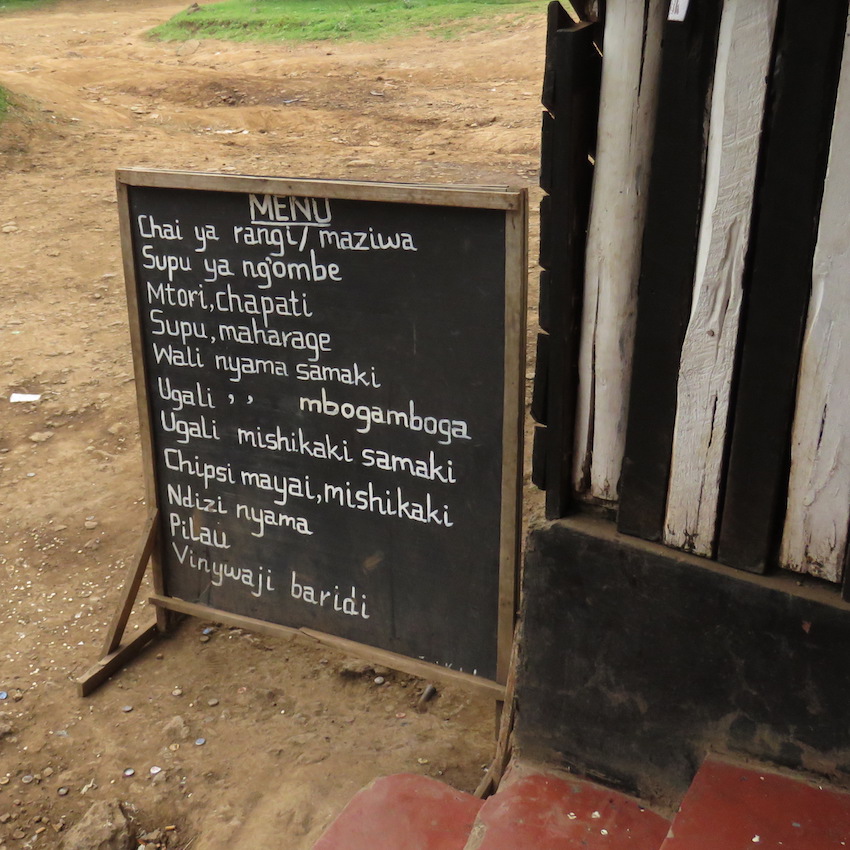 MENU
Chai ya rangi/maziwa
Supu ya ng'ombe
Mtori,chapati
Supu,maharage
Wali nyama samaki
Ugali ,, mbogamboga
Ugali mishikaki samaki
Chipsi mayai,mishikaki
Ndizi nyama
Pilau
Vinywaji baridi